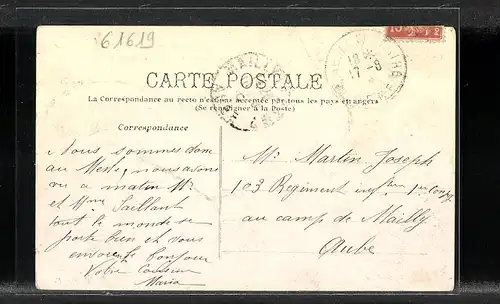 61619
CARTE POSTALE
La Correspondance au recto n'est pas acceptée par tous les pays étrangers
(Se renseigner à la Poste)
Correspondance
Nous sommes
au Mesle, nous avons
vu ce matin Mr
et Mme Saillant
tout le monde se
porte bien et vous
envoient le bonjour
Votre Cousine
Maria
Mr Martin Joseph
103 Regiment infrie 1re Compie
au camp de Mailly
Aube
MAILLY